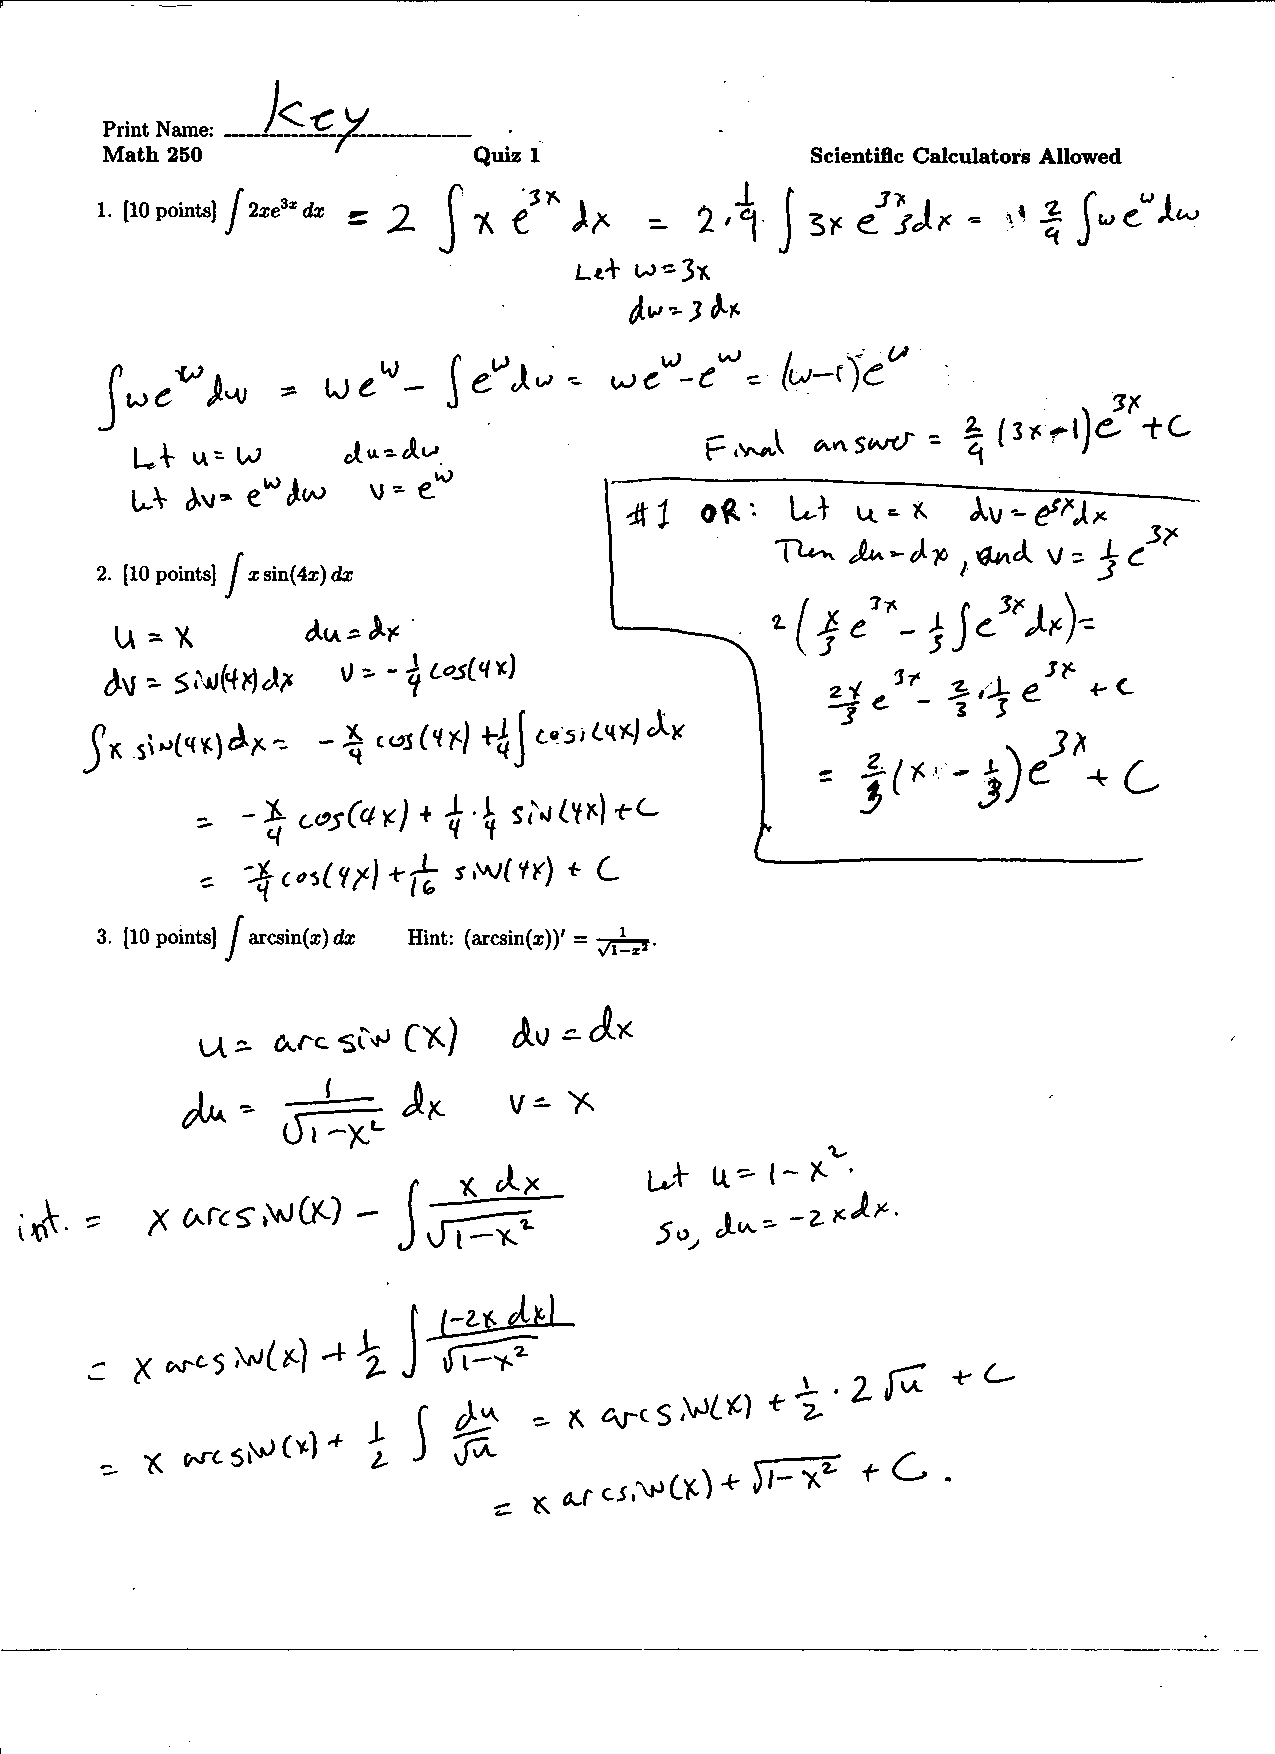 Print Name: Key
Math 250 Quiz 1 Scientific Calculators Allowed
1. [10 points] ∫ 2xe^{3x} dx = 2 ∫ x e^{3x} dx = 2·1/9 ∫ 3x e^{3x} 3dx = 2/9 ∫ w e^w dw
Let w = 3x
dw = 3 dx
∫ w e^w dw = w e^w − ∫ e^w dw = w e^w − e^w = (w−1)e^w
Final answer = 2/9 (3x−1)e^{3x} + C
Let u = w du = dw
Let dv = e^w dw v = e^w
#1 OR: Let u = x dv = e^{3x} dx
Then du = dx, and v = 1/3 e^{3x}
2 ( x/3 e^{3x} − 1/3 ∫ e^{3x} dx ) =
2x/3 e^{3x} − 2/3 · 1/3 e^{3x} + C
= 2/3 (x − 1/3) e^{3x} + C
2. [10 points] ∫ x sin(4x) dx
u = x du = dx
dv = sin(4x) dx v = −1/4 cos(4x)
∫ x sin(4x) dx = −x/4 cos(4x) + 1/4 ∫ cos(4x) dx
= −x/4 cos(4x) + 1/4 · 1/4 sin(4x) + C
= −x/4 cos(4x) + 1/16 sin(4x) + C
3. [10 points] ∫ arcsin(x) dx Hint: (arcsin(x))′ = 1/√(1−x²).
u = arcsin(x) dv = dx
du = 1/√(1−x²) dx v = x
int. = x arcsin(x) − ∫ x dx/√(1−x²)
Let u = 1−x².
So, du = −2x dx.
= x arcsin(x) + 1/2 ∫ (−2x dx)/√(1−x²)
= x arcsin(x) + 1/2 ∫ du/√u = x arcsin(x) + 1/2 · 2√u + C
= x arcsin(x) + √(1−x²) + C.